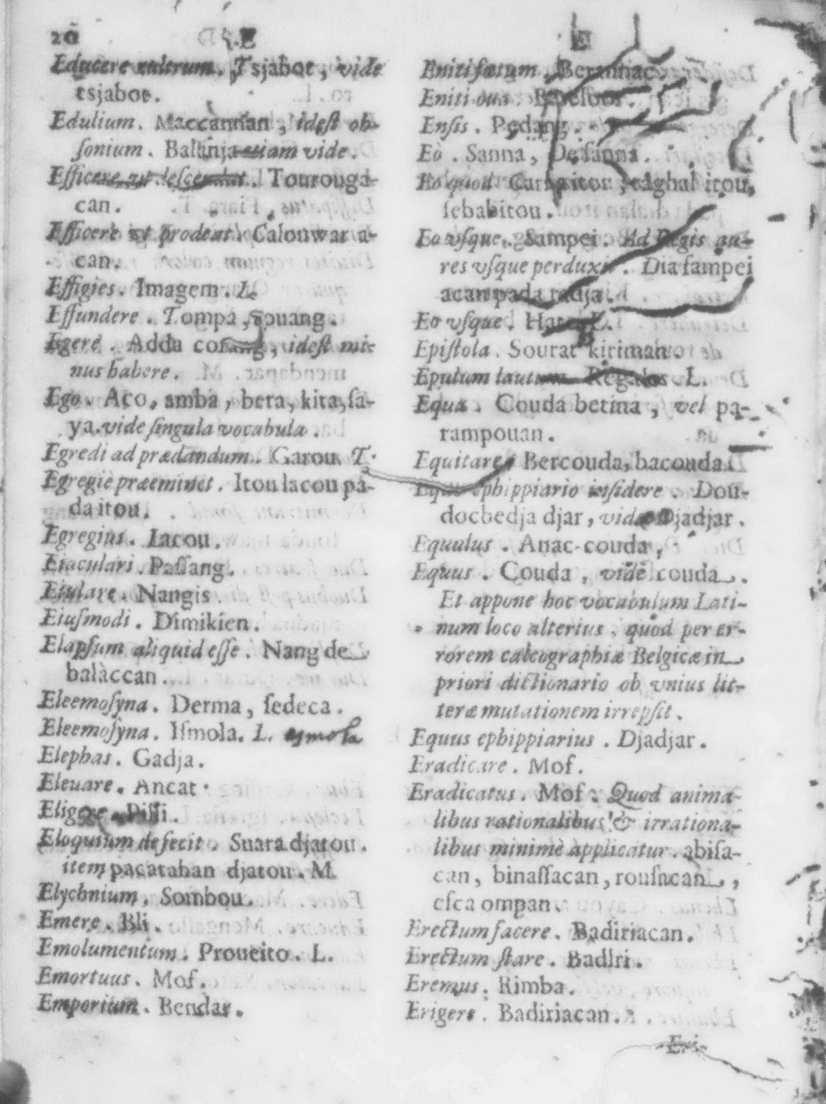 20 E
Educere cultrum. Tsjabot, vide
tsjabot.
Edulium. Maccannan, idest ob-
sonium. Ballinja etiam vide.
Efficere ut descendat. Tourouga-
can.
Efficere ut prodeat. Calouwar a-
can.
Effigies. Imagem. L.
Effundere. Tompa, touang.
Egere. Adda corang, idest mi-
nus habere.
Ego. Aco, amba, bera, kita, sa-
ya. vide singula vocabula.
Egredi ad prædandum. Garou. T.
Egregiè præeminet. Itou lacou pa-
da itou.
Egregius. Lacou.
Eiaculari. Passang.
Eiulare. Nangis.
Eiusmodi. Dimikien.
Elapsum aliquid esse. Nang de
balàccan.
Eleemosyna. Derma, sedeca.
Eleemosyna. Ismola. L. esmola
Elephas. Gadja.
Eleuare. Ancat.
Eligere. Pilli.
Eloquium defecit. Suara djatou.
item pacataban djatou. M.
Elychnium. Sombou.
Emere. Bli.
Emolumentum. Proueito. L.
Emortuus. Mof.
Emporium. Bendar.
E
Eniti fœtum. Berannac.
Eniti oua.
Ensis. Pedang.
Eò. Sanna, De sanna.
Eo quod itou,
sebabitou.
Eo vsque. Sampei. Ad Regis au-
res vsque perduxit. Dia sampei
acan pada radja.
Eo vsque. L.
Epistola. Sourat kiriman
Epulum lautum. Regalos. L.
Equa. Couda betina, vel pa-
rampouan.
Equitare. Bercouda, bacouda.
Equo ephippiario insidere. Dou-
docbedja djar, vide Djadjar.
Equulus. Anac-couda,
Equus. Couda, vide couda.
Et appone hoc vocabulum Lati-
num loco alterius, quod per er-
rorem calcographiæ Belgicæ in
priori dictionario ob vnius lit-
teræ mutationem irrepsit.
Equus ephippiarius. Djadjar.
Eradicare. Mof.
Eradicatus. Mof. Quod anima-
libus rationalibus & irrationa-
libus minimè applicatur. abisa-
can, binassacan, rousacan,
esca ompan.
Erectum facere. Badiriacan.
Erectum stare. Badiri.
Eremus. Rimba.
Erigere. Badiriacan.
Eri-